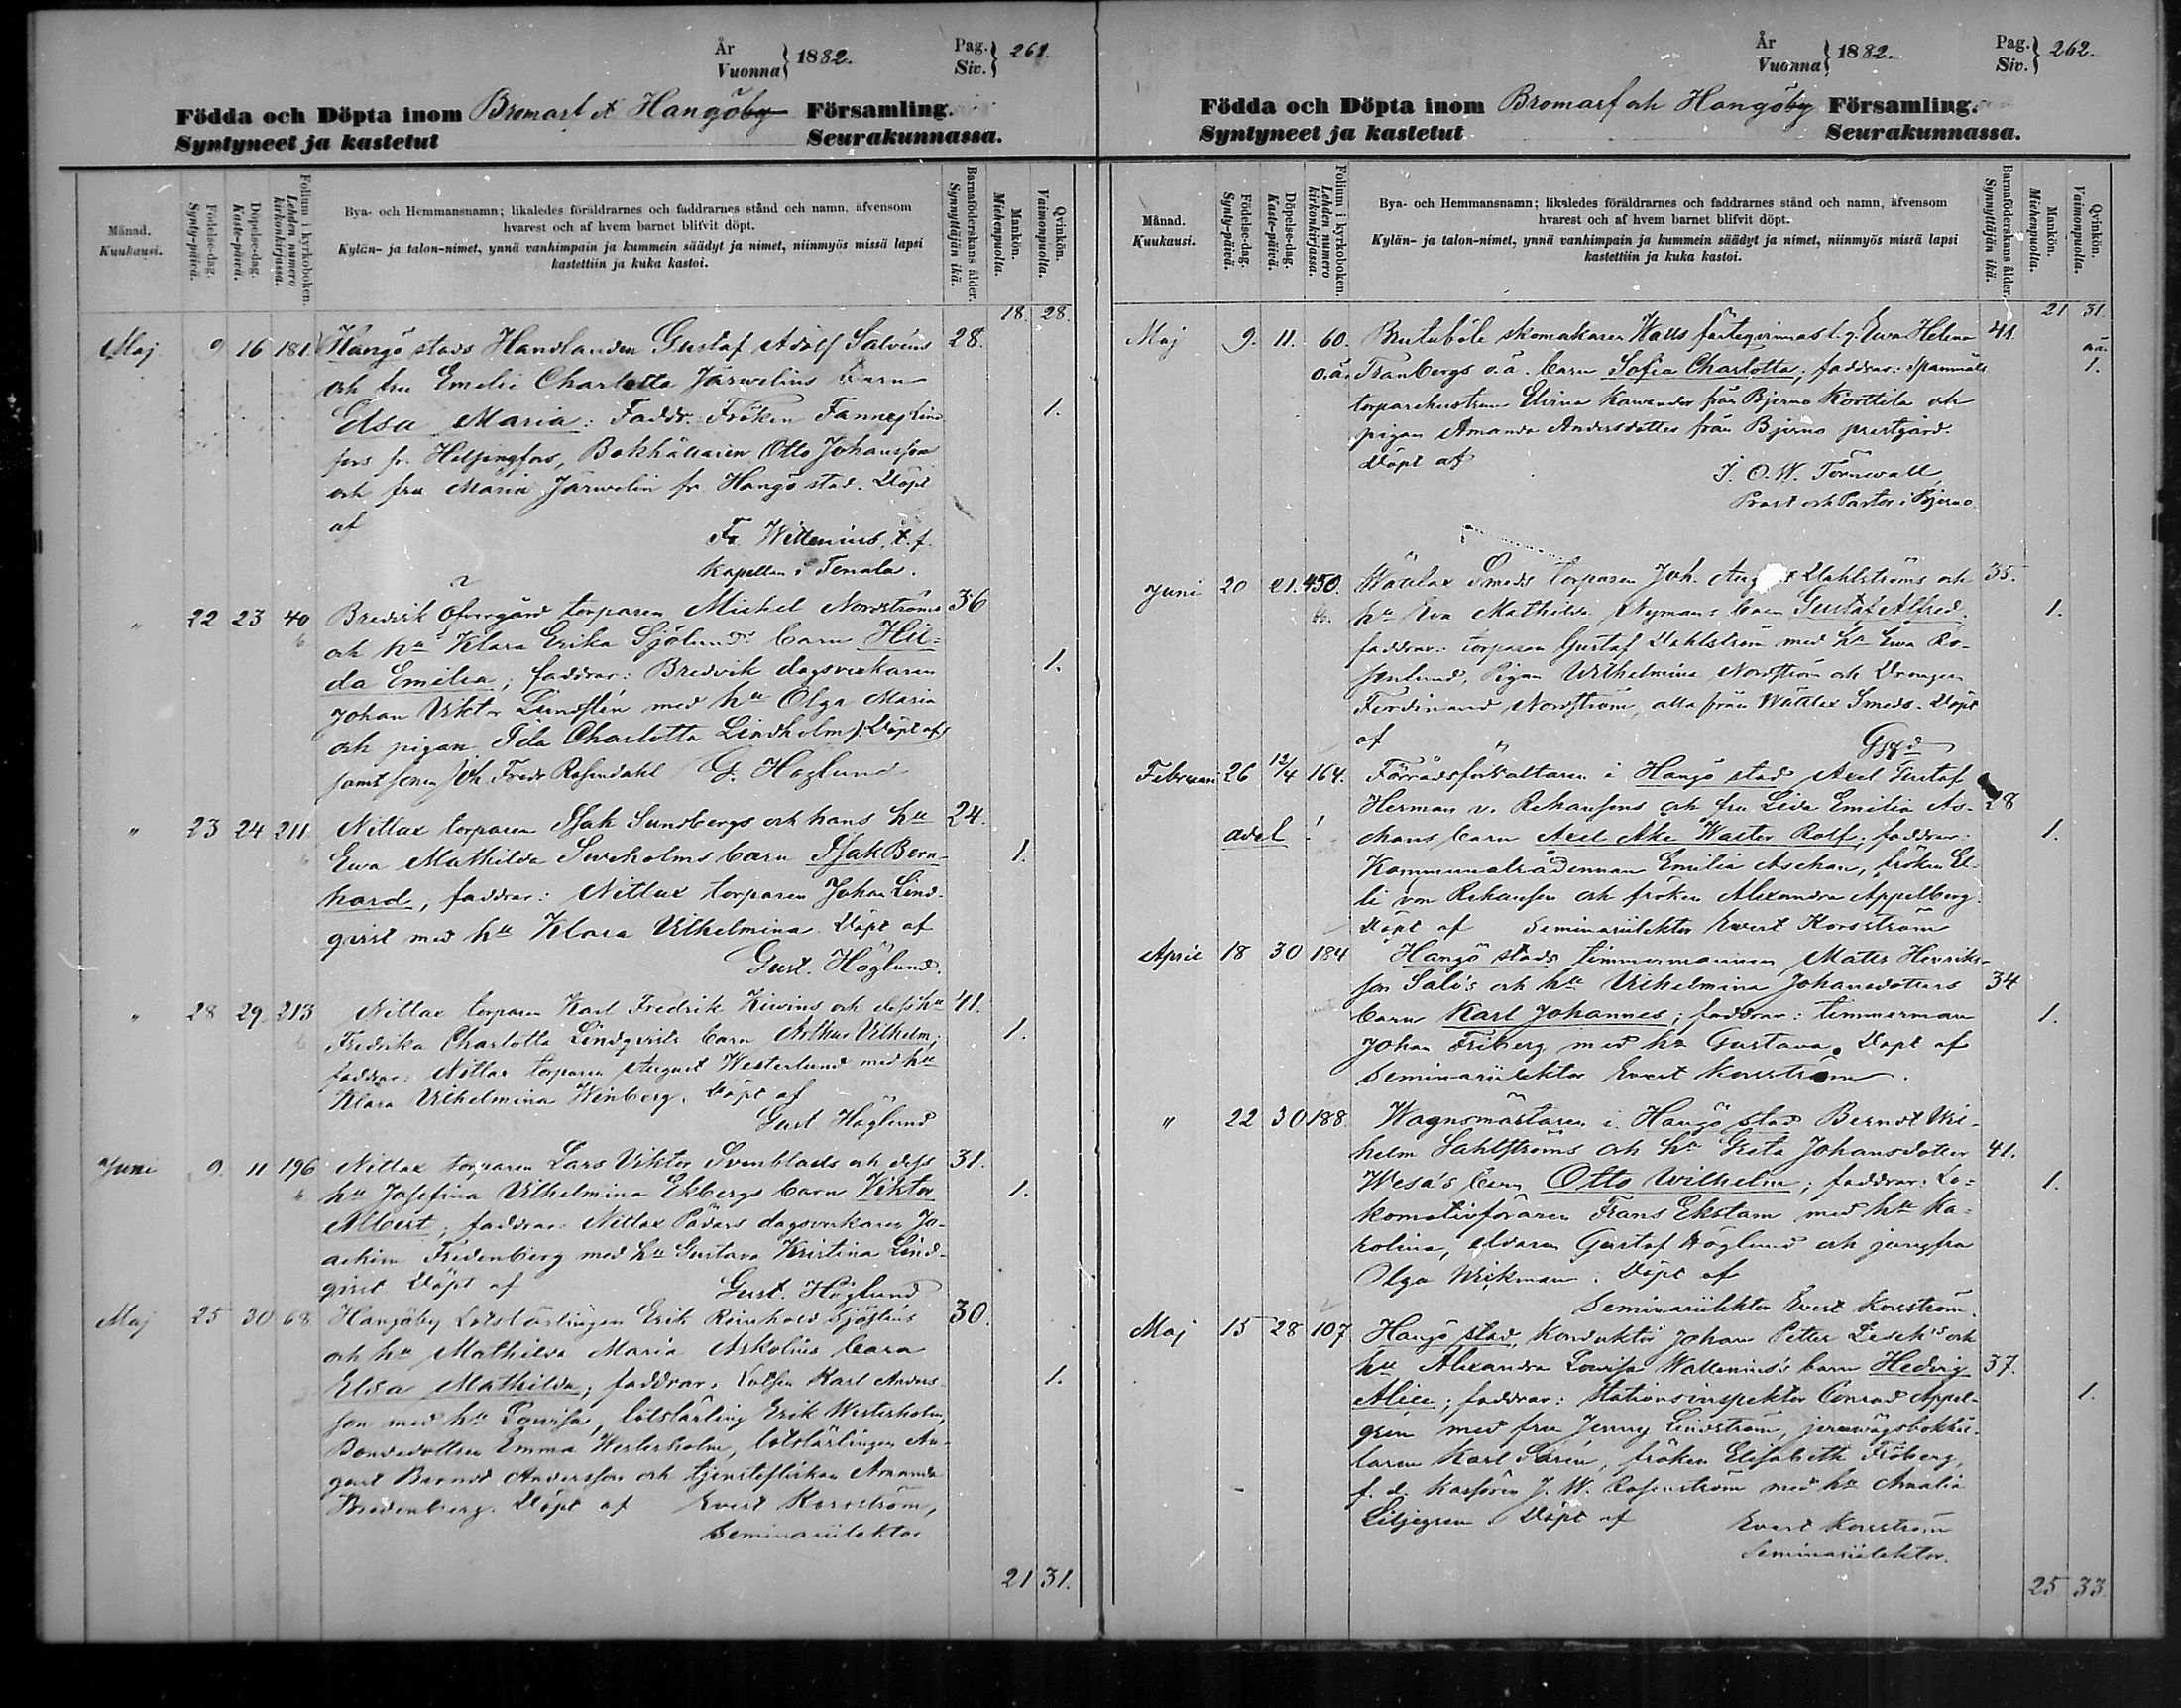 År
Vuonna } 1882.
Pag.
Siv. } 261.
Födda och Döpta inom Bromarf et Hangöby Församling.
Syntyneet ja kastetut Seurakunnassa.
Månad.
Kuukausi.
Födelse-dag.
Synty-päivä.
Döpelse-dag.
Kaste-päivä.
Folium i kyrkoboken.
Lehden numero kirkonkirjassa.
Bya- och Hemmansnamn; likaledes föräldrarnes och faddrarnes stånd och namn, äfvensom
hvarest och af hvem barnet blifvit döpt.
Kylän- ja talon-nimet, ynnä vanhimpain ja kummein säädyt ja nimet, niinmyös missä lapsi
kastettiin ja kuka kastoi.
Barnaföderskans ålder.
Synnyttäjän ikä.
Mankön.
Miehenpuolta.
Qvinkön.
Vaimonpuolta.
18. 28.
Maj 9 16 181. Hangö stads Handlanden Gustaf Adolf Salvéns 28.
och fru Emelie Charlotta Järvelins barn
Elsa Maria: Faddr. Fröken Fanny Lind 1.
fors fr. Helsingfors, Bokhållaren Otto Johansson
och fru Maria Järvelin fr. Hangö stad. Döpt
af
Fr. Wittenius, t.f.
Kapellan i Tenala.
" 22 23 40 Bredvik Öfvergård torparen Michel Nordströms 36
och hu Klara Erika Sjölunds barn Hil=
da Emilia; faddrar: Bredvik dagsverkaren 1.
Johan Viktor Lundstén med hu Olga Maria
och pigan Ida Charlotta Lindholm. Döpt af
samt sonen Joh. Fredr. Rosendahl G. Höglund
" 23 24 211. Nitlax torparen Isak Sundbergs och hans hu 24.
Ewa Mathilda Sweholms barn Isak Bern- 1.
hard, faddrar: Nitlax torparen Johan Lind-
qvist med hu Klara Vilhelmina. Döpt af
Gust. Höglund.
" 28 29. 213 Nitlax torparen Karl Fredrik Kiwins och dess hu 41.
Fredrika Charlotta Lindqvists barn Arthur Vilhelm; 1.
faddrar: Nitlax torparen August Westerlund med hu
Klara Vilhelmina Winberg. Döpt af
Gust Höglund
Juni 9. 11 196 Nitlax torparen Lars Viktor Svenblads och dess 31.
hu Josefina Vilhelmina Ekbergs barn Viktor 1.
Albert; faddrar: Nitlax Pådars dagsverkaren Jo-
achim Fredenberg med hu Gustava Kristina Lind-
qvist Döpt af Gust. Höglund
Maj 25 30 68 Hangöby Lotslärlingen Erik Reinhold Sjösténs 30.
och hu Mathilda Maria Askolins barn
Elsa Mathilda; faddrar: Lotsen Karl Anders- 1.
son med hu Lovisa, lotslärling Erik Westerholm,
Bondedottren Emma Westerholm, lotslärlingen Au-
gust Berndt Andersson och tjensteflickan Amanda
Bredenberg. Döpt af Evert Korsström,
Seminariilektor
21 31.
År
Vuonna } 1882.
Pag.
Siv. } 262.
Födda och Döpta inom Bromarf och Hangöby Församling.
Syntyneet ja kastetut Seurakunnassa.
Månad.
Kuukausi.
Födelse-dag.
Synty-päivä.
Döpelse-dag.
Kaste-päivä.
Folium i kyrkoboken.
Lehden numero kirkonkirjassa.
Bya- och Hemmansnamn; likaledes föräldrarnes och faddrarnes stånd och namn, äfvensom
hvarest och af hvem barnet blifvit döpt.
Kylän- ja talon-nimet, ynnä vanhimpain ja kummein säädyt ja nimet, niinmyös missä lapsi
kastettiin ja kuka kastoi.
Barnaföderskans ålder.
Synnyttäjän ikä.
Mankön.
Miehenpuolta.
Qvinkön.
Vaimonpuolta.
21 31.
Maj 9. 11. 60. skomakaren Ewa Helena 41.
o.ä. Tranbergs o.ä. barn Sofia Charlotta; faddrar: 1.
torparehustrun från Bjerno Korttila och
pigan Amanda Andersdotter från Bjerno prestgård.
Döpt af
J. O. W. Törnwall,
Prost och Pastor i Bjerno
Juni 20 21. 450. Wättlax Smeds torparen Joh. August Dahlströms och 35.
hu Eva Mathilda Nymans barn Gustaf Alfred. 1.
faddrar: torparen Gustaf Dahlström med hu Ewa Ro-
senlund, Pigan Wilhelmina Nordström och Drängen
Ferdinand Nordström, alla från Wättlax Smeds. Döpt
af
Februari 26 12/4 164. Förrådsförvaltaren i Hangö stad Axel Gustaf
Herman v. Rehausens och fru Lida Emilia As- 28
adel! chans barn Axel Åke Walter Rolf; faddrar: 1.
Kommunalrådinnan Emilia Aschan, fröken El-
li von Rehausen och fröken Alexandra Appelberg.
Döpt af Seminariilektor Evert Korsström
April 18 30 184 Hangö stads timmermannen Matts Henriks-
son Salo's och hu Vilhelmina Johansdotters 34
barn Karl Johannes; faddrar: timmerman 1.
Johan Friberg med hu Gustava. Döpt af
Seminariilektor Evert Korsström.
" 22 30 188. Wagnsmästaren i Hangö stad Berndt Wil-
helm Sahlströms och hu Greta Johansdotter 41.
Wesa's barn Otto Wilhelm; faddrar: Lo= 1.
komotivföraren Frans Ekstam med hu Ka-
rolina, eldaren Gustaf Höglund och jungfru
Olga Wikman. Döpt af
Seminariilektor Evert Korsström.
Maj 15 28 107 Hangö stad, Konduktör Johan Petter Lesch's och
hu Alexandra Lovisa Wallenius's barn Hedvig 37.
Alice; faddrar: Stationsinspektor Conrad Appel- 1.
gren med fru Jenny Lindström, jernvägsbokhål-
laren Karl Sarén, fröken Elisabeth Fröberg,
f. d. Kassören J. W. Rosenström med hu Amalia
Liljegren. Döpt af Evert Korsström
Seminariilektor.
25 33